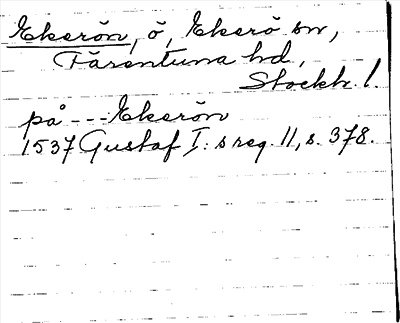 Ekerön, ö, Ekerö sn,
Färentuna hd,
Stockh. l.
på --- Ekerön
1537 Gustaf I:s reg. 11, s. 378.